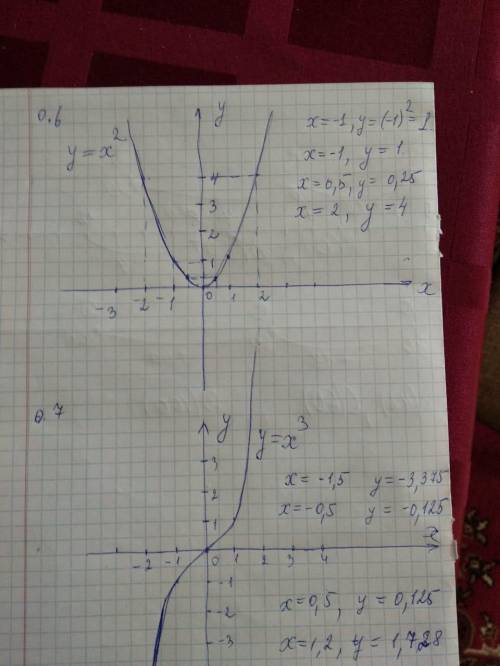 0.6
y
x=-1, y=(-1)²=1
y=x²
x=-1, y=1
x=0,5, y=0,25
x=2, y=4
4
3
2
1
-3 -2 -1 0 1 2 x
0.7
y
y=x³
3
x=-1,5 y=-3,375
2
x=-0,5 y=-0,125
1
-2 -1 0 1 2 3 4
-1
x=0,5, y=0,125
-2
x=1,2, y=1,728
-3